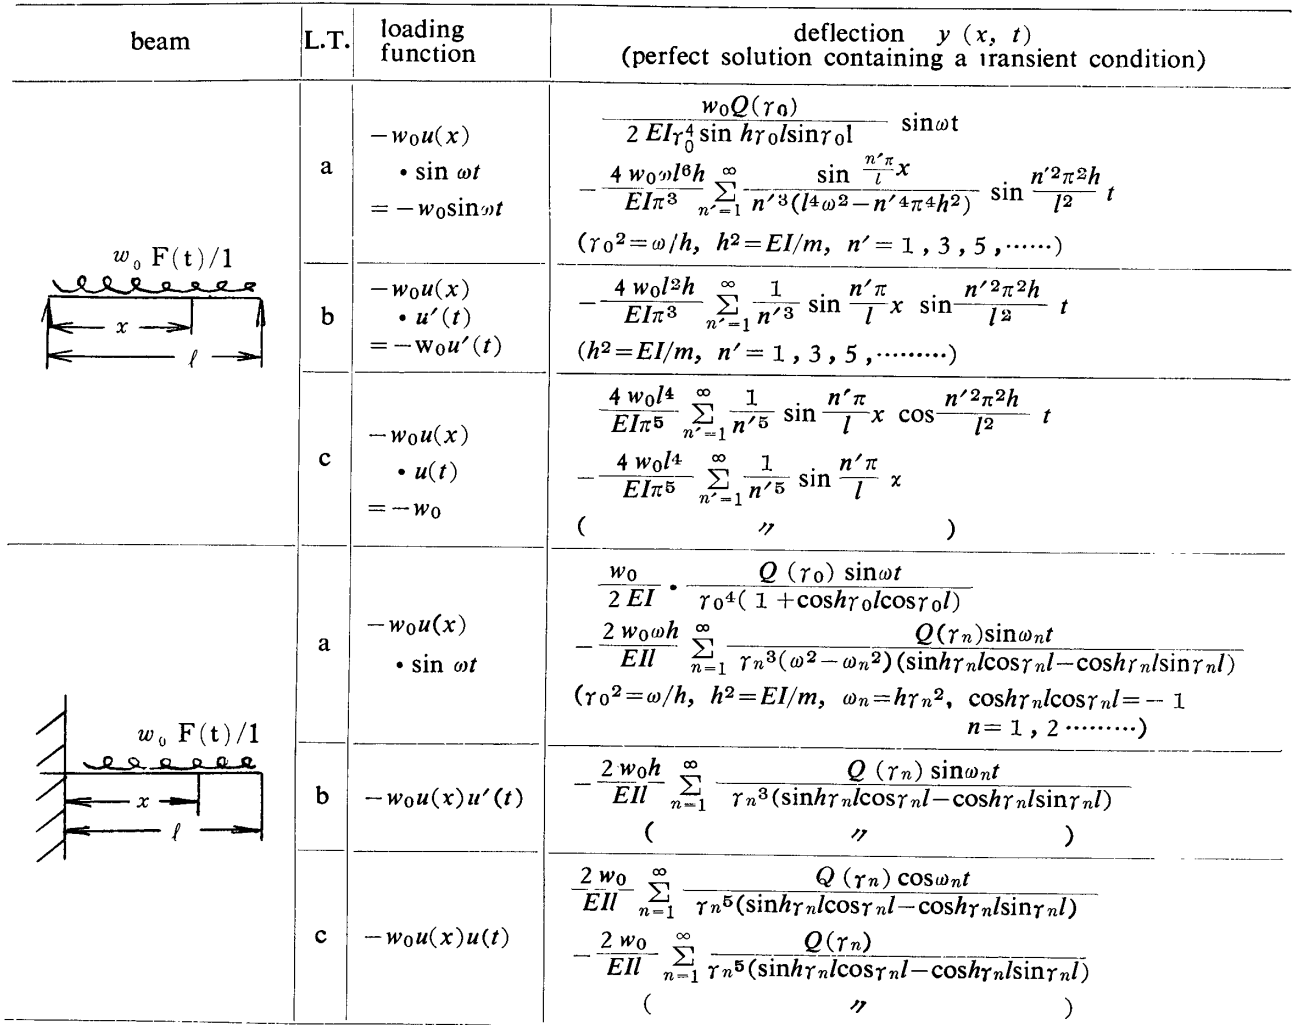 beam
L.T.
loading
function
deflection y (x, t)
(perfect solution containing a transient condition)
w₀ F(t)/1
x
ℓ
a
−w₀u(x)
• sin ωt
= −w₀sinωt
w₀Q(γ₀) / 2 EIγ₀⁴ sin hγ₀lsinγ₀l sinωt
− 4 w₀ωl⁶h / EIπ³ ∑_{n′=1}^{∞} sin n′π/l x / n′³(l⁴ω²−n′⁴π⁴h²) sin n′²π²h / l² t
(γ₀²=ω/h, h²=EI/m, n′= 1 , 3 , 5 ,……)
b
−w₀u(x)
• u′(t)
= −w₀u′(t)
− 4 w₀l²h / EIπ³ ∑_{n′=1}^{∞} 1/n′³ sin n′π/l x sin n′²π²h / l² t
(h²=EI/m, n′= 1 , 3 , 5 ,………)
c
−w₀u(x)
• u(t)
= −w₀
4 w₀l⁴ / EIπ⁵ ∑_{n′=1}^{∞} 1/n′⁵ sin n′π/l x cos n′²π²h / l² t
− 4 w₀l⁴ / EIπ⁵ ∑_{n′=1}^{∞} 1/n′⁵ sin n′π/l x
( 〃 )
w₀ F(t)/1
x
ℓ
a
−w₀u(x)
• sin ωt
w₀ / 2 EI • Q (γ₀) sinωt / γ₀⁴( 1 +coshγ₀lcosγ₀l)
− 2 w₀ωh / EIl ∑_{n=1}^{∞} Q(γₙ)sinωₙt / γₙ³(ω²−ωₙ²)(sinhγₙlcosγₙl−coshγₙlsinγₙl)
(γ₀²=ω/h, h²=EI/m, ωₙ=hγₙ², coshγₙlcosγₙl= − 1
n= 1 , 2 ………)
b
−w₀u(x)u′(t)
− 2 w₀h / EIl ∑_{n=1}^{∞} Q (γₙ) sinωₙt / γₙ³(sinhγₙlcosγₙl−coshγₙlsinγₙl)
( 〃 )
c
−w₀u(x)u(t)
2 w₀ / EIl ∑_{n=1}^{∞} Q (γₙ) cosωₙt / γₙ⁵(sinhγₙlcosγₙl−coshγₙlsinγₙl)
− 2 w₀ / EIl ∑_{n=1}^{∞} Q(γₙ) / γₙ⁵(sinhγₙlcosγₙl−coshγₙlsinγₙl)
( 〃 )